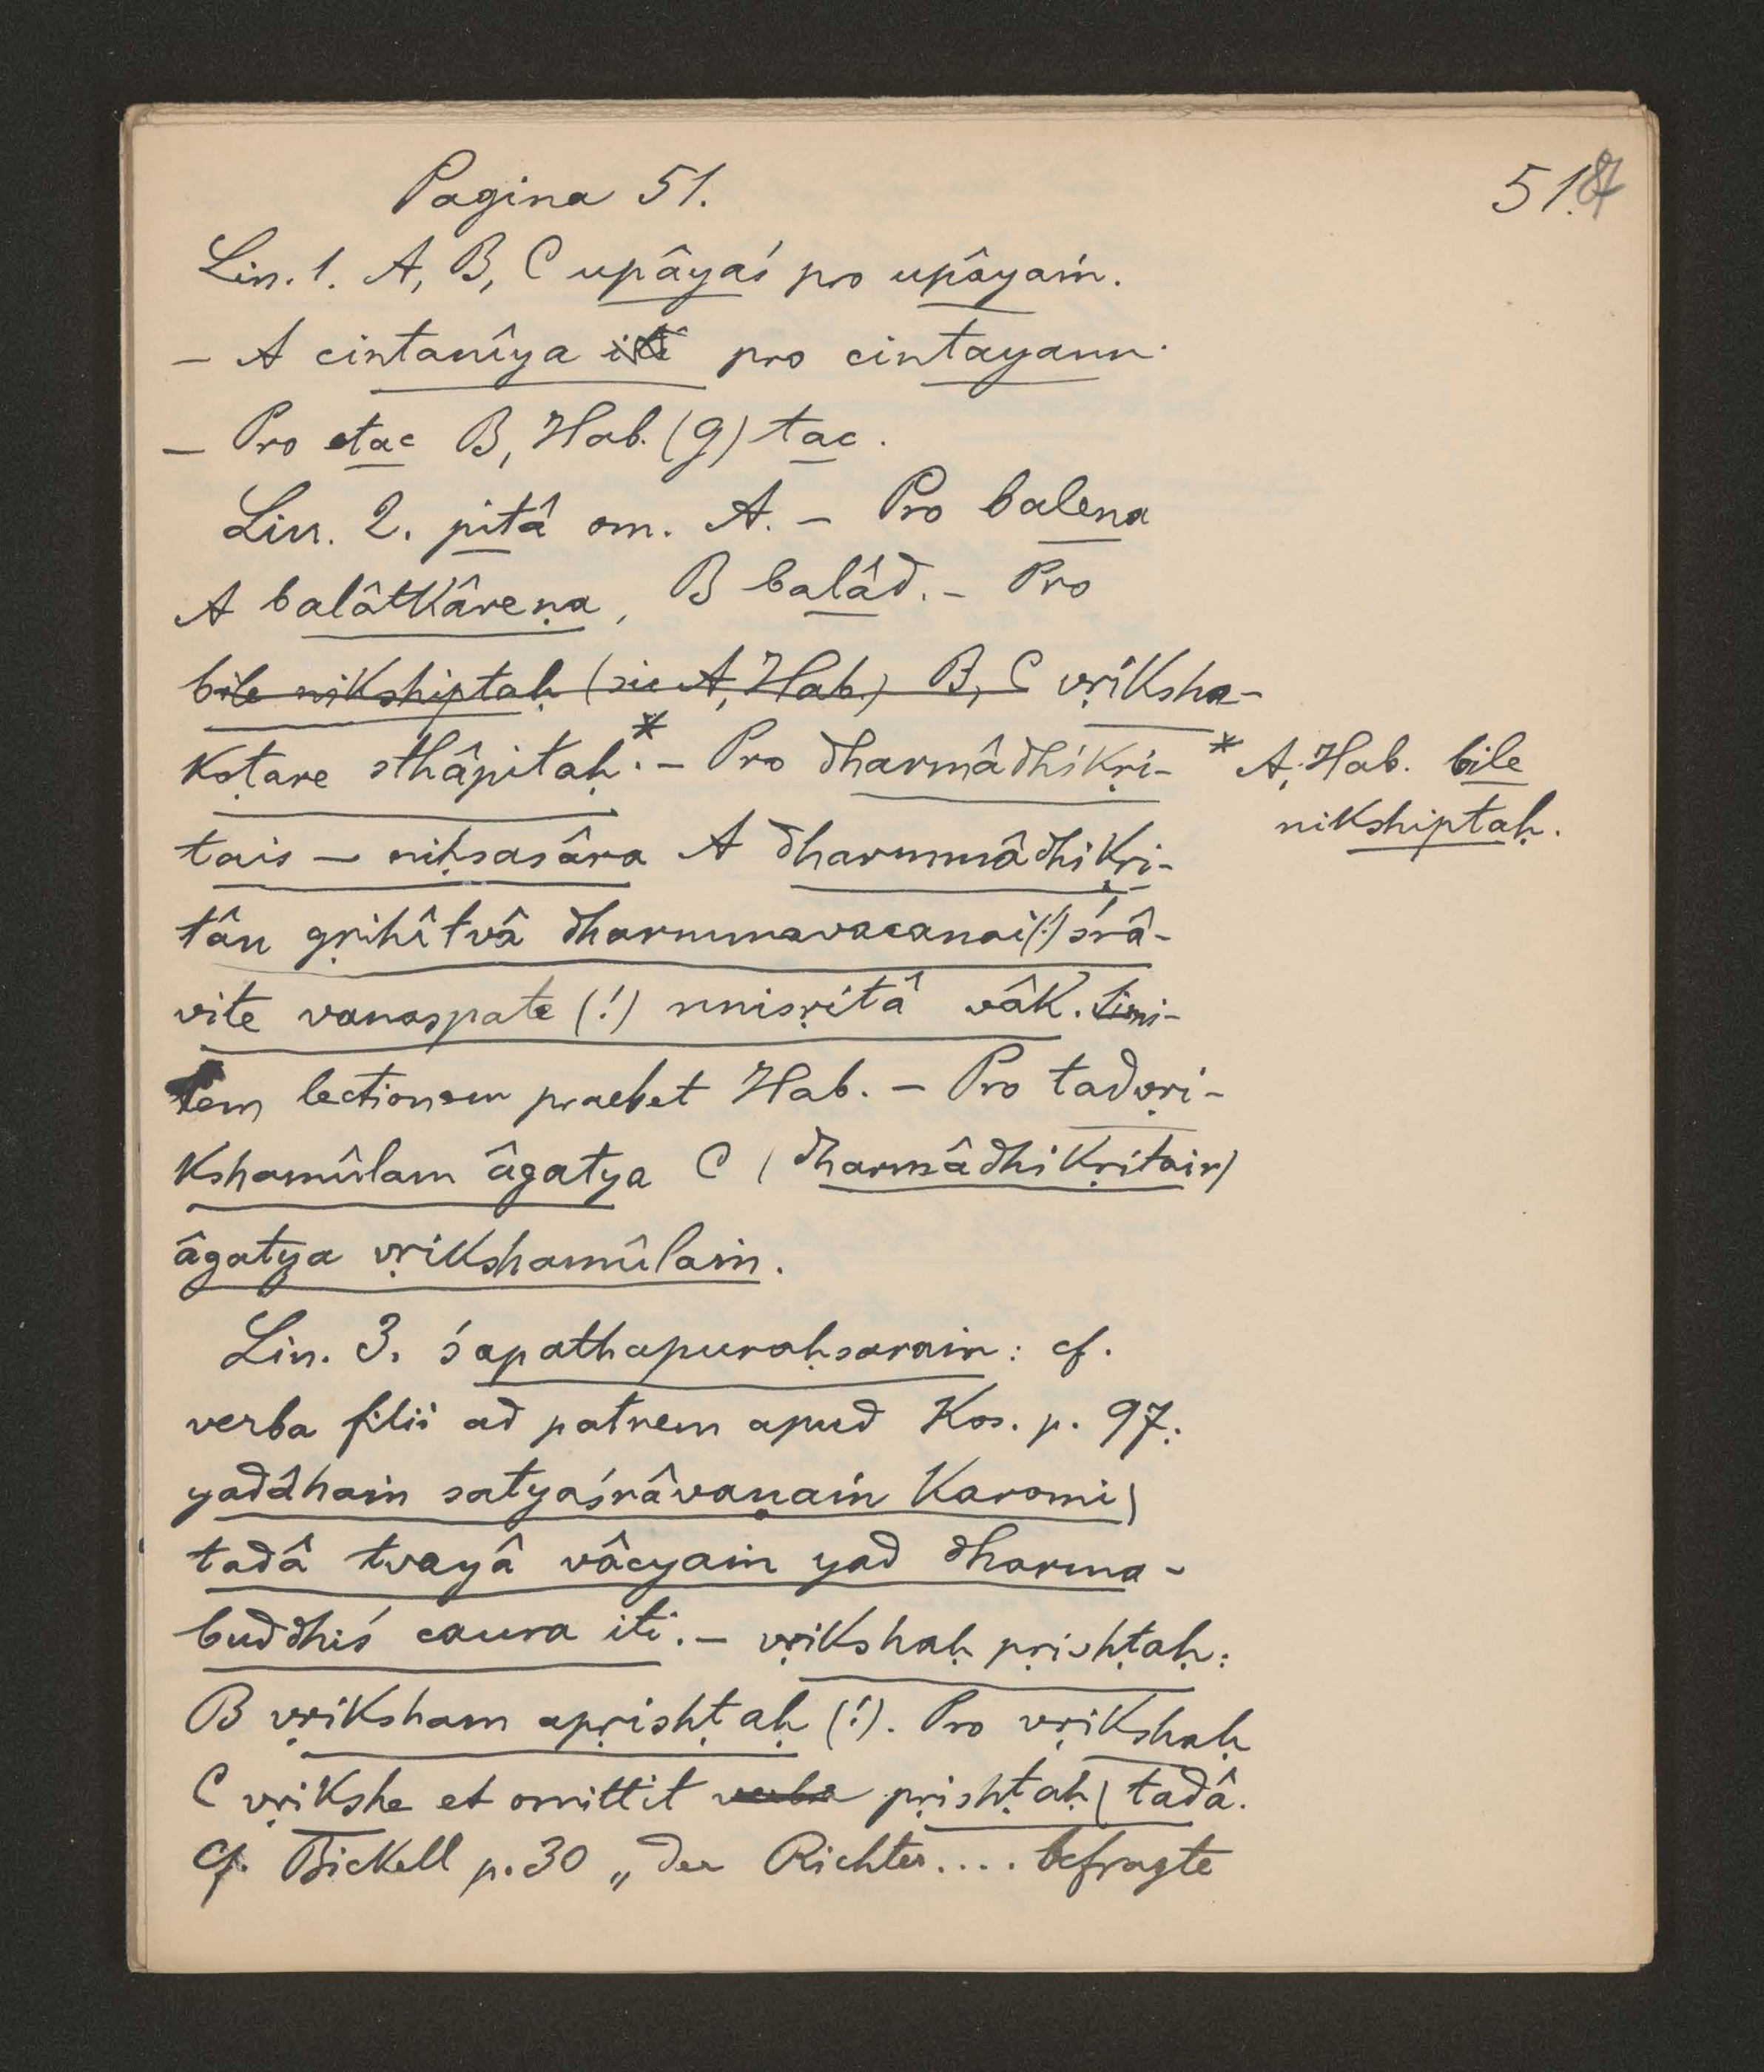 Pagina 51.
51.
Lin. 1. A, B, C upâyaś pro upâyaṁ.
– A cintanîya iti pro cintayann.
– Pro etac B, Hab. (g) tac.
Lin. 2. pitâ om. A. – Pro balena
A balâtkâreṇa, B balâd. – Pro
bile nikshiptaḥ (sic A, Hab.) B, C vṛiksha-
koṭare sthâpitaḥ.* – Pro dharmâdhikṛi-
* A, Hab. bile
nikshiptaḥ.
tais – niḥsasâra A dharmmâdhikṛi-
tân gṛihîtvâ dharmmavacanai(!) śrâ-
vite vanaspate (!) nnisṛitâ vâk. Simi-
lem lectionem praebet Hab. – Pro tadvṛi-
kshamûlam âgatya C (dharmâdhikṛitair)
âgatya vṛikshamûlaṁ.
Lin. 3. śapathapuraḥsaraṁ: cf.
verba filii ad patrem apud Kos. p. 97:
yadâhaṁ satyaśrâvaṇaṁ karomi|
tadâ tvayâ vâcyaṁ yad dharma-
buddhiś caura iti. – vṛikshaḥ pṛishṭaḥ:
B vṛiksham apṛishṭaḥ (!). Pro vṛikshaḥ
C vṛikshe et omittit verba pṛishṭaḥ| tadâ.
Cf. Bickell p. 30 „Der Richter.... befragte